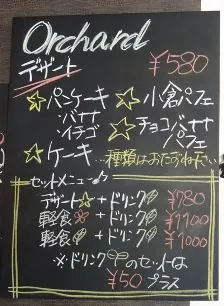 Orchard
デザート ¥580
☆パンケーキ ☆小倉パフェ
バナナ
イチゴ ☆チョコバナナ
パフェ
☆ケーキ…種類はおたずね下さい
セットメニュー♪
デザート☆+ドリンク ¥780
軽食+ドリンク ¥1100
軽食+ドリンク ¥1000
※ドリンクのセットは
¥50プラス